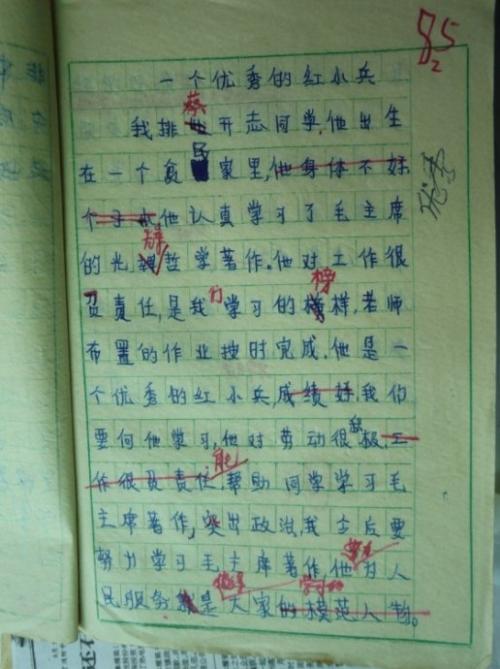 85
2
一个优秀的红小兵
蔡
我排 开志同学，他出生
民
在一个贫 家里，他身体不好
个子 他认真学习了毛主席
辉
的光 哲学著作。他对工作很
们 榜
负责任，是我 学习的 样，老师
布置的作业按时完成。他是一
个优秀的红小兵，成绩好，我们
要向他学习，他对劳动很积极，工
能
作很负责任，帮助同学学习毛
主席著作，突出政治，我今后要
努力学习毛主席著作，他为人
学习的
民服务就是大家的模范人物。